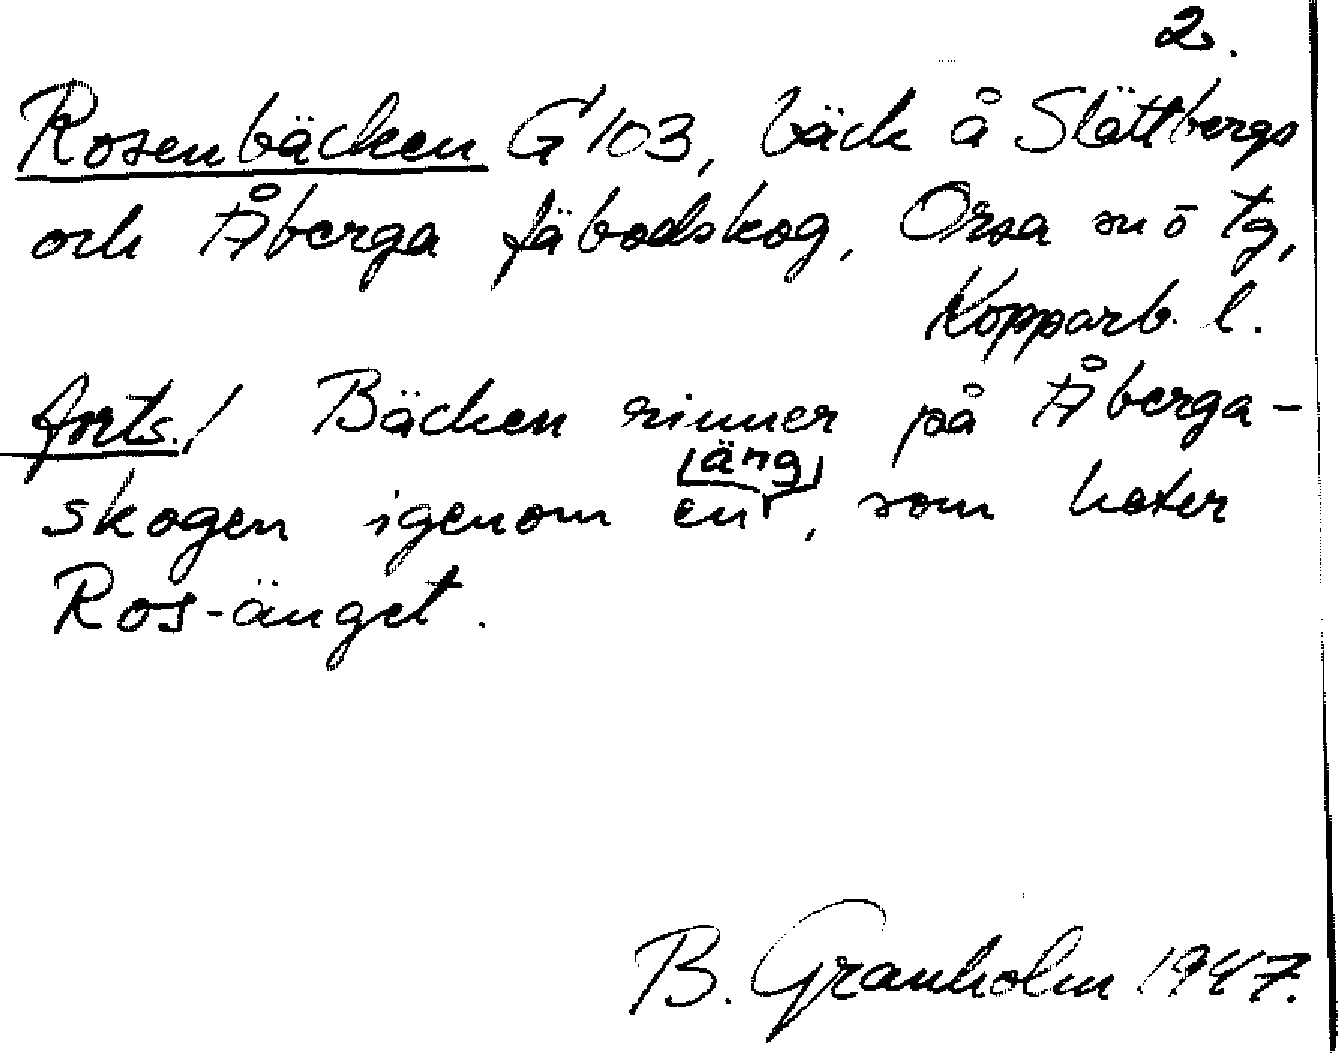 2.
Rosenbäcken G 103, bäck å Slättbergs
och Åberga fäbodskog, Orsa sn ö tg,
Kopparb. l.
forts./ Bäcken rinner på Åberga-
skogen igenom en äng, som heter
Ros-änget.
B. Granholm 1947.